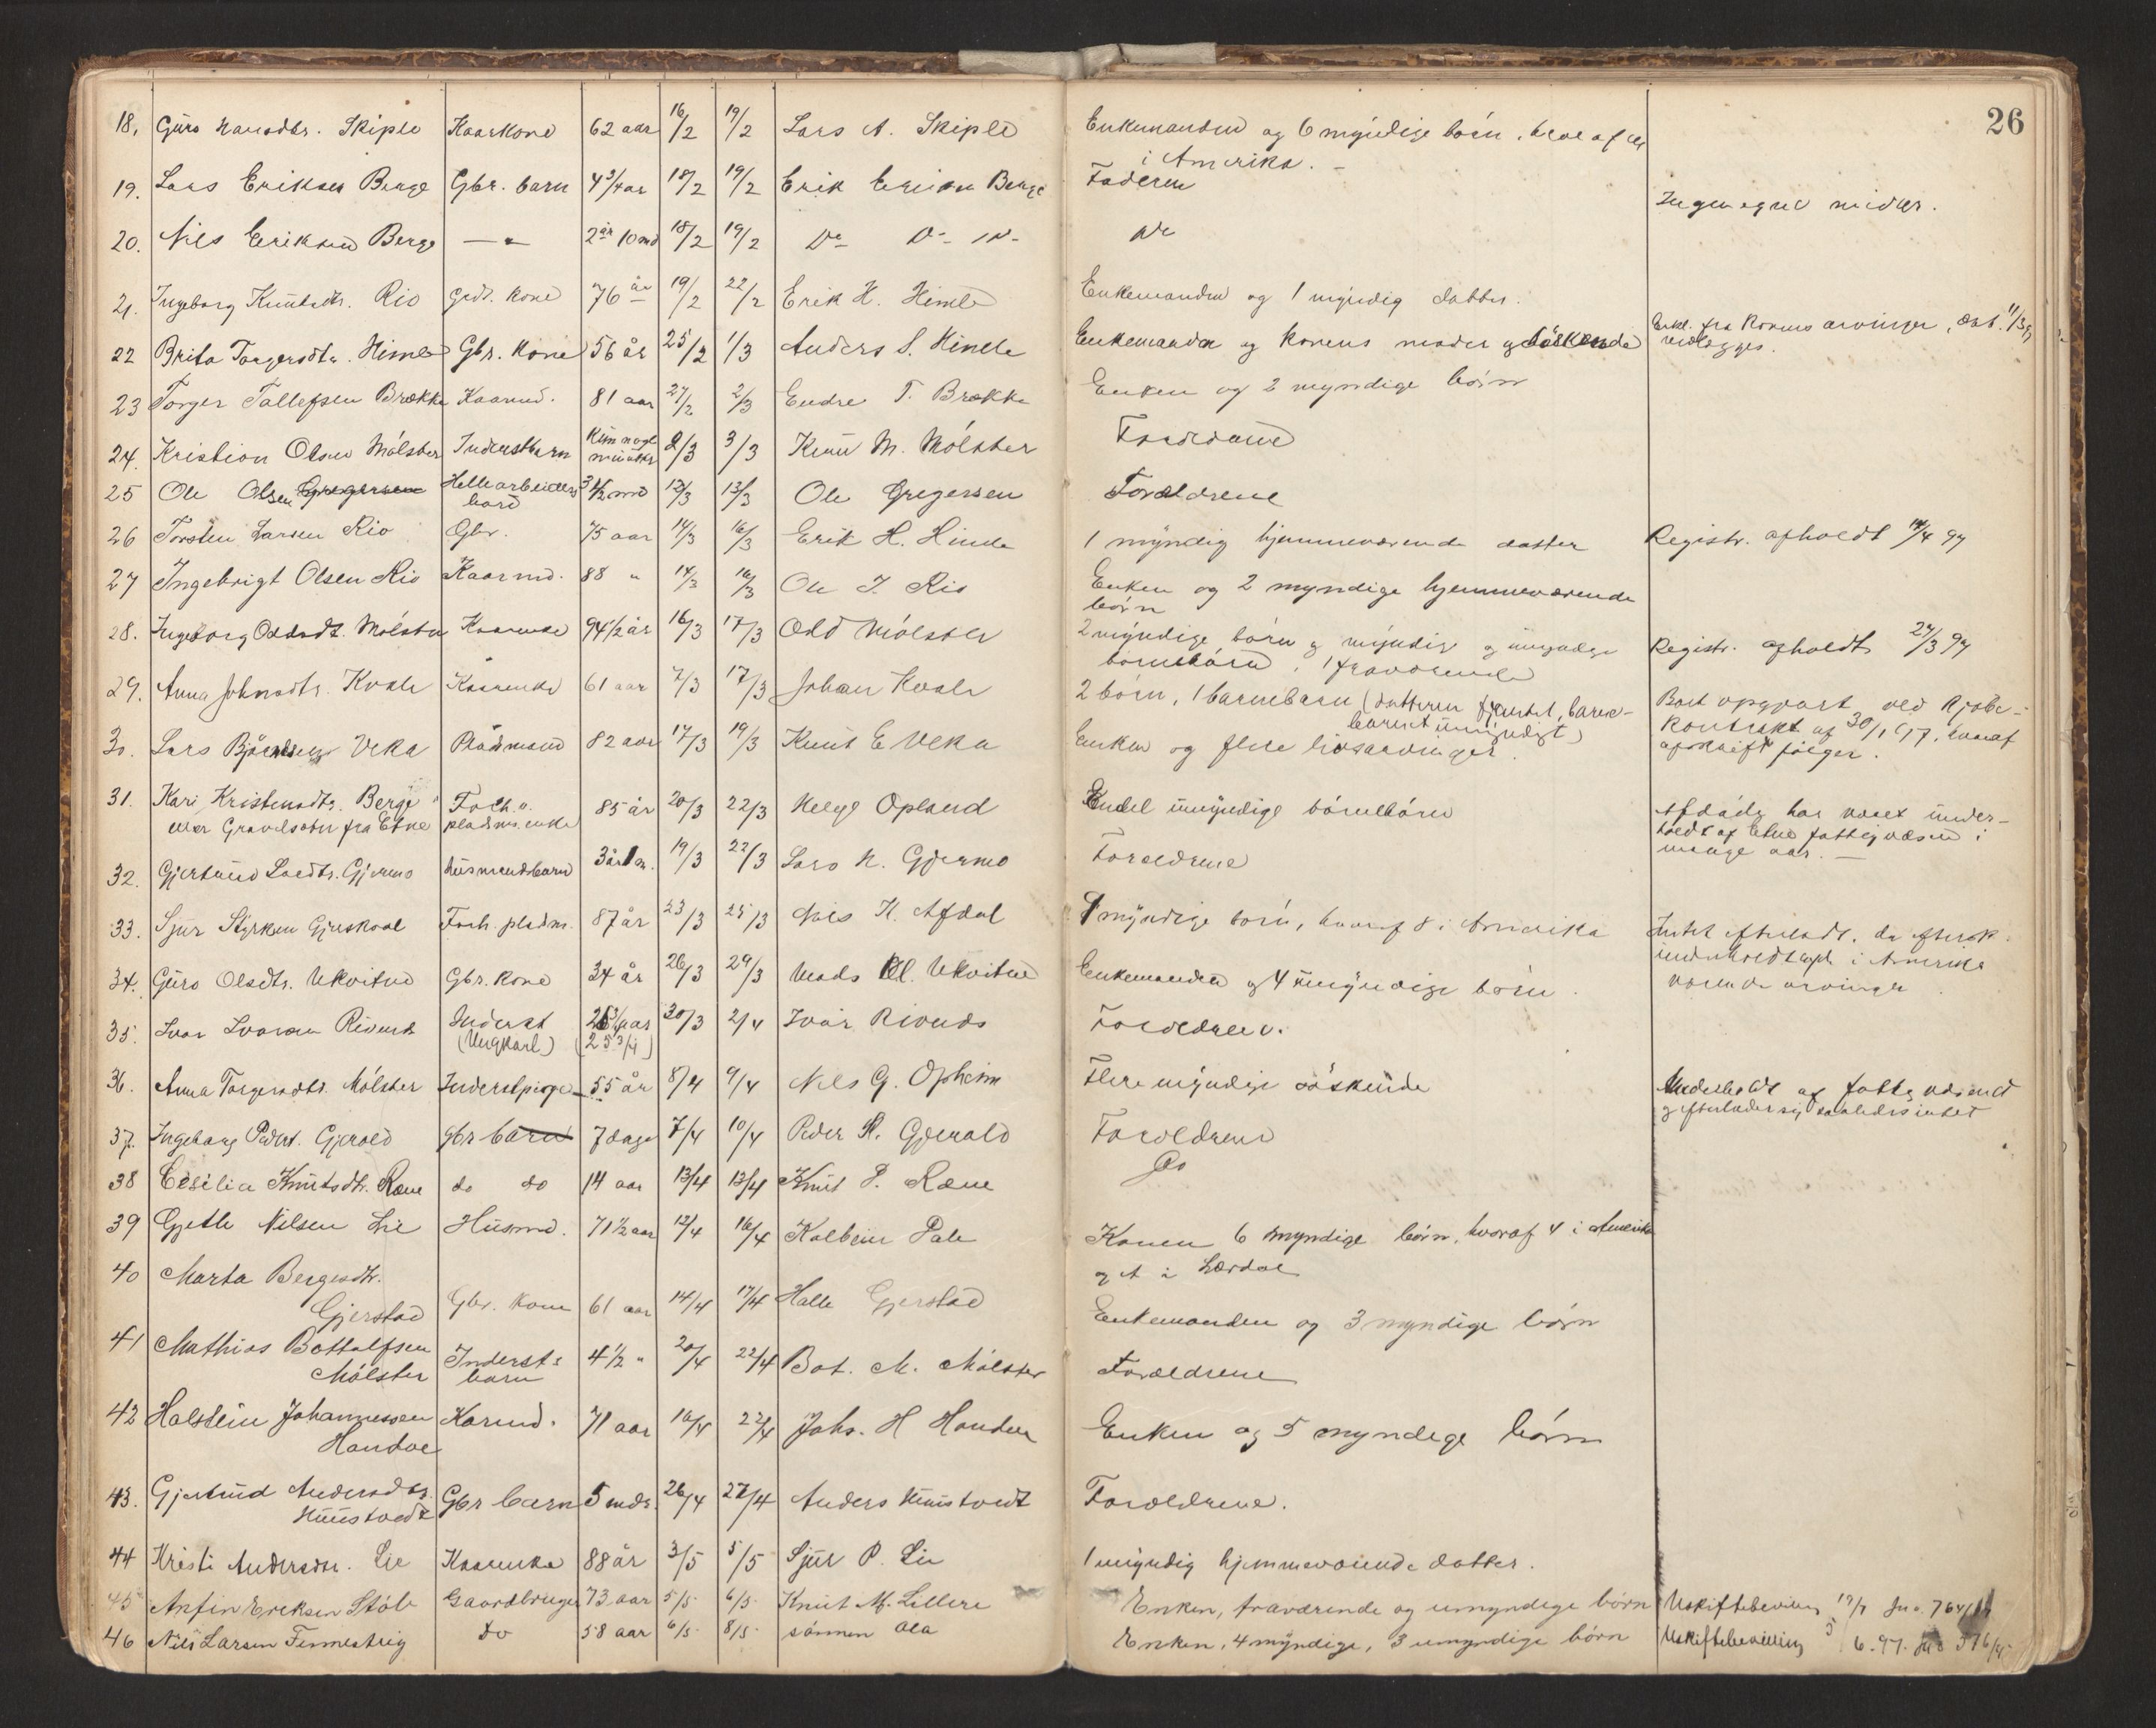 26
18. Guro Hansdtr. Skiple Kaarkone 62 aar 16/2 19/2 Lars A. Skiple Enkemanden og 6 myndige børn, hvoraf
i Amerika. -
19. Lars Eriksen Berge Gbr. barn 4 3/4 aar 18/2 19/2 Erik Eriksen Berge Faderen Ingen egne midler.
20. Nils Eriksen Berge —"— 2 år 10 md 18/2 19/2 Do Do Do Do
21. Ingeborg Knutsdtr. Rio Gbr. kone 76 år 19/2 22/2 Erik H. Himle Enkemanden og 1 myndig datter.
22 Brita Torgersdtr. Himle Gbr. Kone 56 år 25/2 1/3 Anders S. Himle Enkemanden og konens moder og søskende Erkl. fra konens arvinger, dat. 11/3 97
vedlægges.
23 Torger Tollefsen Brække Kaarmd. 81 aar 27/2 2/3 Endre T. Brække Enken og 2 myndige børn
24. Kristian Olsen Mölster Inderstbarn Kun nogle
minutter 2/3 3/3 Knut M. Mölster Forældrene
25 Ole Olsen Gregersen Hellearbeiders
barn 3 1/2 md 12/3 13/3 Ole Gregersen Forældrene
26 Torsten Larsen Rio Gbr. 75 aar 14/3 16/3 Erik H. Himle 1 myndig hjemmeværende datter Registr. afholdt 14/4 97
27 Ingebrigt Olsen Rio Kaarmd. 88 " 14/3 16/3 Ole I. Rio Enken og 2 myndige hjemmeværende
børn
28. Ingeborg Oddsdt. Mölster Kaarenke 94 1/2 år 16/3 17/3 Odd Mölster 2 myndige børn og myndige og umyndige
børnebørn, 1 fraværende Registr. afholdt 24/3 97
29. Anna Johnsdtr. Kvale Kaarenke 61 aar 7/3 17/3 Johan Kvale 2 börn, 1 barnebarn (datteren fravendt, barne-
barnet umyndigt) Boet opgjort ved kjøbe-
kontrakt af 30/1 97, hvoraf
afskrift følger.
30. Lars Bjørndsen Veka Pladsmand 82 aar 17/3 19/3 Knut E Veka Enken og flere livsarvinger.
31. Kari Kristensdtr. Berge
eller Gravelsæter fra Etne Forh. v.
pladsms. enke 85 år 20/3 22/3 Helge Opland Endel umyndige börnebörn Afdøde har været under-
holdt af Etne fattigvæsen i
mange aar. —
32. Gjertrud Larsdtr. Gjermo Husmandsbarn 3 år 1 m. 19/3 22/3 Lars N. Gjermo Forældrene
33. Sjur Styrksen Gjerskvål Forh. pladsm. 87 år 23/3 25/3 Nils K. Afdal 9 myndige børn, hvoraf 8 i Amerika Intet efterladt, da
i Amerika
værende arvinger
34. Guro Olsdtr. Ukvitne Gbr. kone 34 år 26/3 29/3 Mads Ol. Ukvitne Enkemanden og 4 umyndige börn.
35. Ivar Ivarsen Rivends Inderst
(Ungkarl) 25 3/4 aar
(25 3/4) 30/3 2/4 Ivar Rivends Forældrene.
36. Anna Torgersdtr. Mölster Inderstpige 55 år 8/4 9/4 Nils G. Opheim Flere myndige söskende Underholdt af fattigvæsenet
og efterlader sig saaledes intet
37. Ingeborg Pedersd. Gjerald Gbr barn 7 dage 7/4 10/4 Peder K. Gjerald Forældrene
38 Cesilia Knutsdtr. Rene do do 14 aar 13/4 13/4 Knut P. Rene Do
39 Gjetle Nilsen Lie Husmd. 71 1/2 aar 12/4 16/4 Kolbein Dale Konen 6 myndige børn, hvoraf 4 i Amerika
og et i Lærdal
40 Marta Bergesdtr.
Gjerstad Gbr. kone 61 aar 14/4 17/4 Halle Gjerstad Enkemanden og 3 myndige børn
41 Mathias Bottolfsen
Mölster Inderst-
barn 4 1/2 " 20/4 22/4 Bot. M. Mölster Forældrene
42 Holstein Johannessen
Handve Karmd. 71 aar 16/4 22/4 Johs. H Handve Enken og 5 myndige børn
43. Gjertrud Andersdtr.
Hunstvedt Gbr barn 5 mdr. 26/4 27/4 Anders Hunstvedt Forældrene.
44 Kristi Andersdtr. Lie Kaarenke 88 år 3/5 5/5 Sjur P. Lie 1 myndig hjemmeværende datter.
45 Anfin Eriksen Støle Gaardbruger 73 aar 5/5 6/5 Knut M. Lillere Enken, fraværende og umyndige börn Uskiftebevilling 19/7 Jno. 764/97
46 Nils Larsen Finnestrig do 58 aar 6/5 8/5 sönnen Ola Enken, 4 myndige, 3 umyndige børn Uskiftebevilling 5/6.97. Jno 576/97